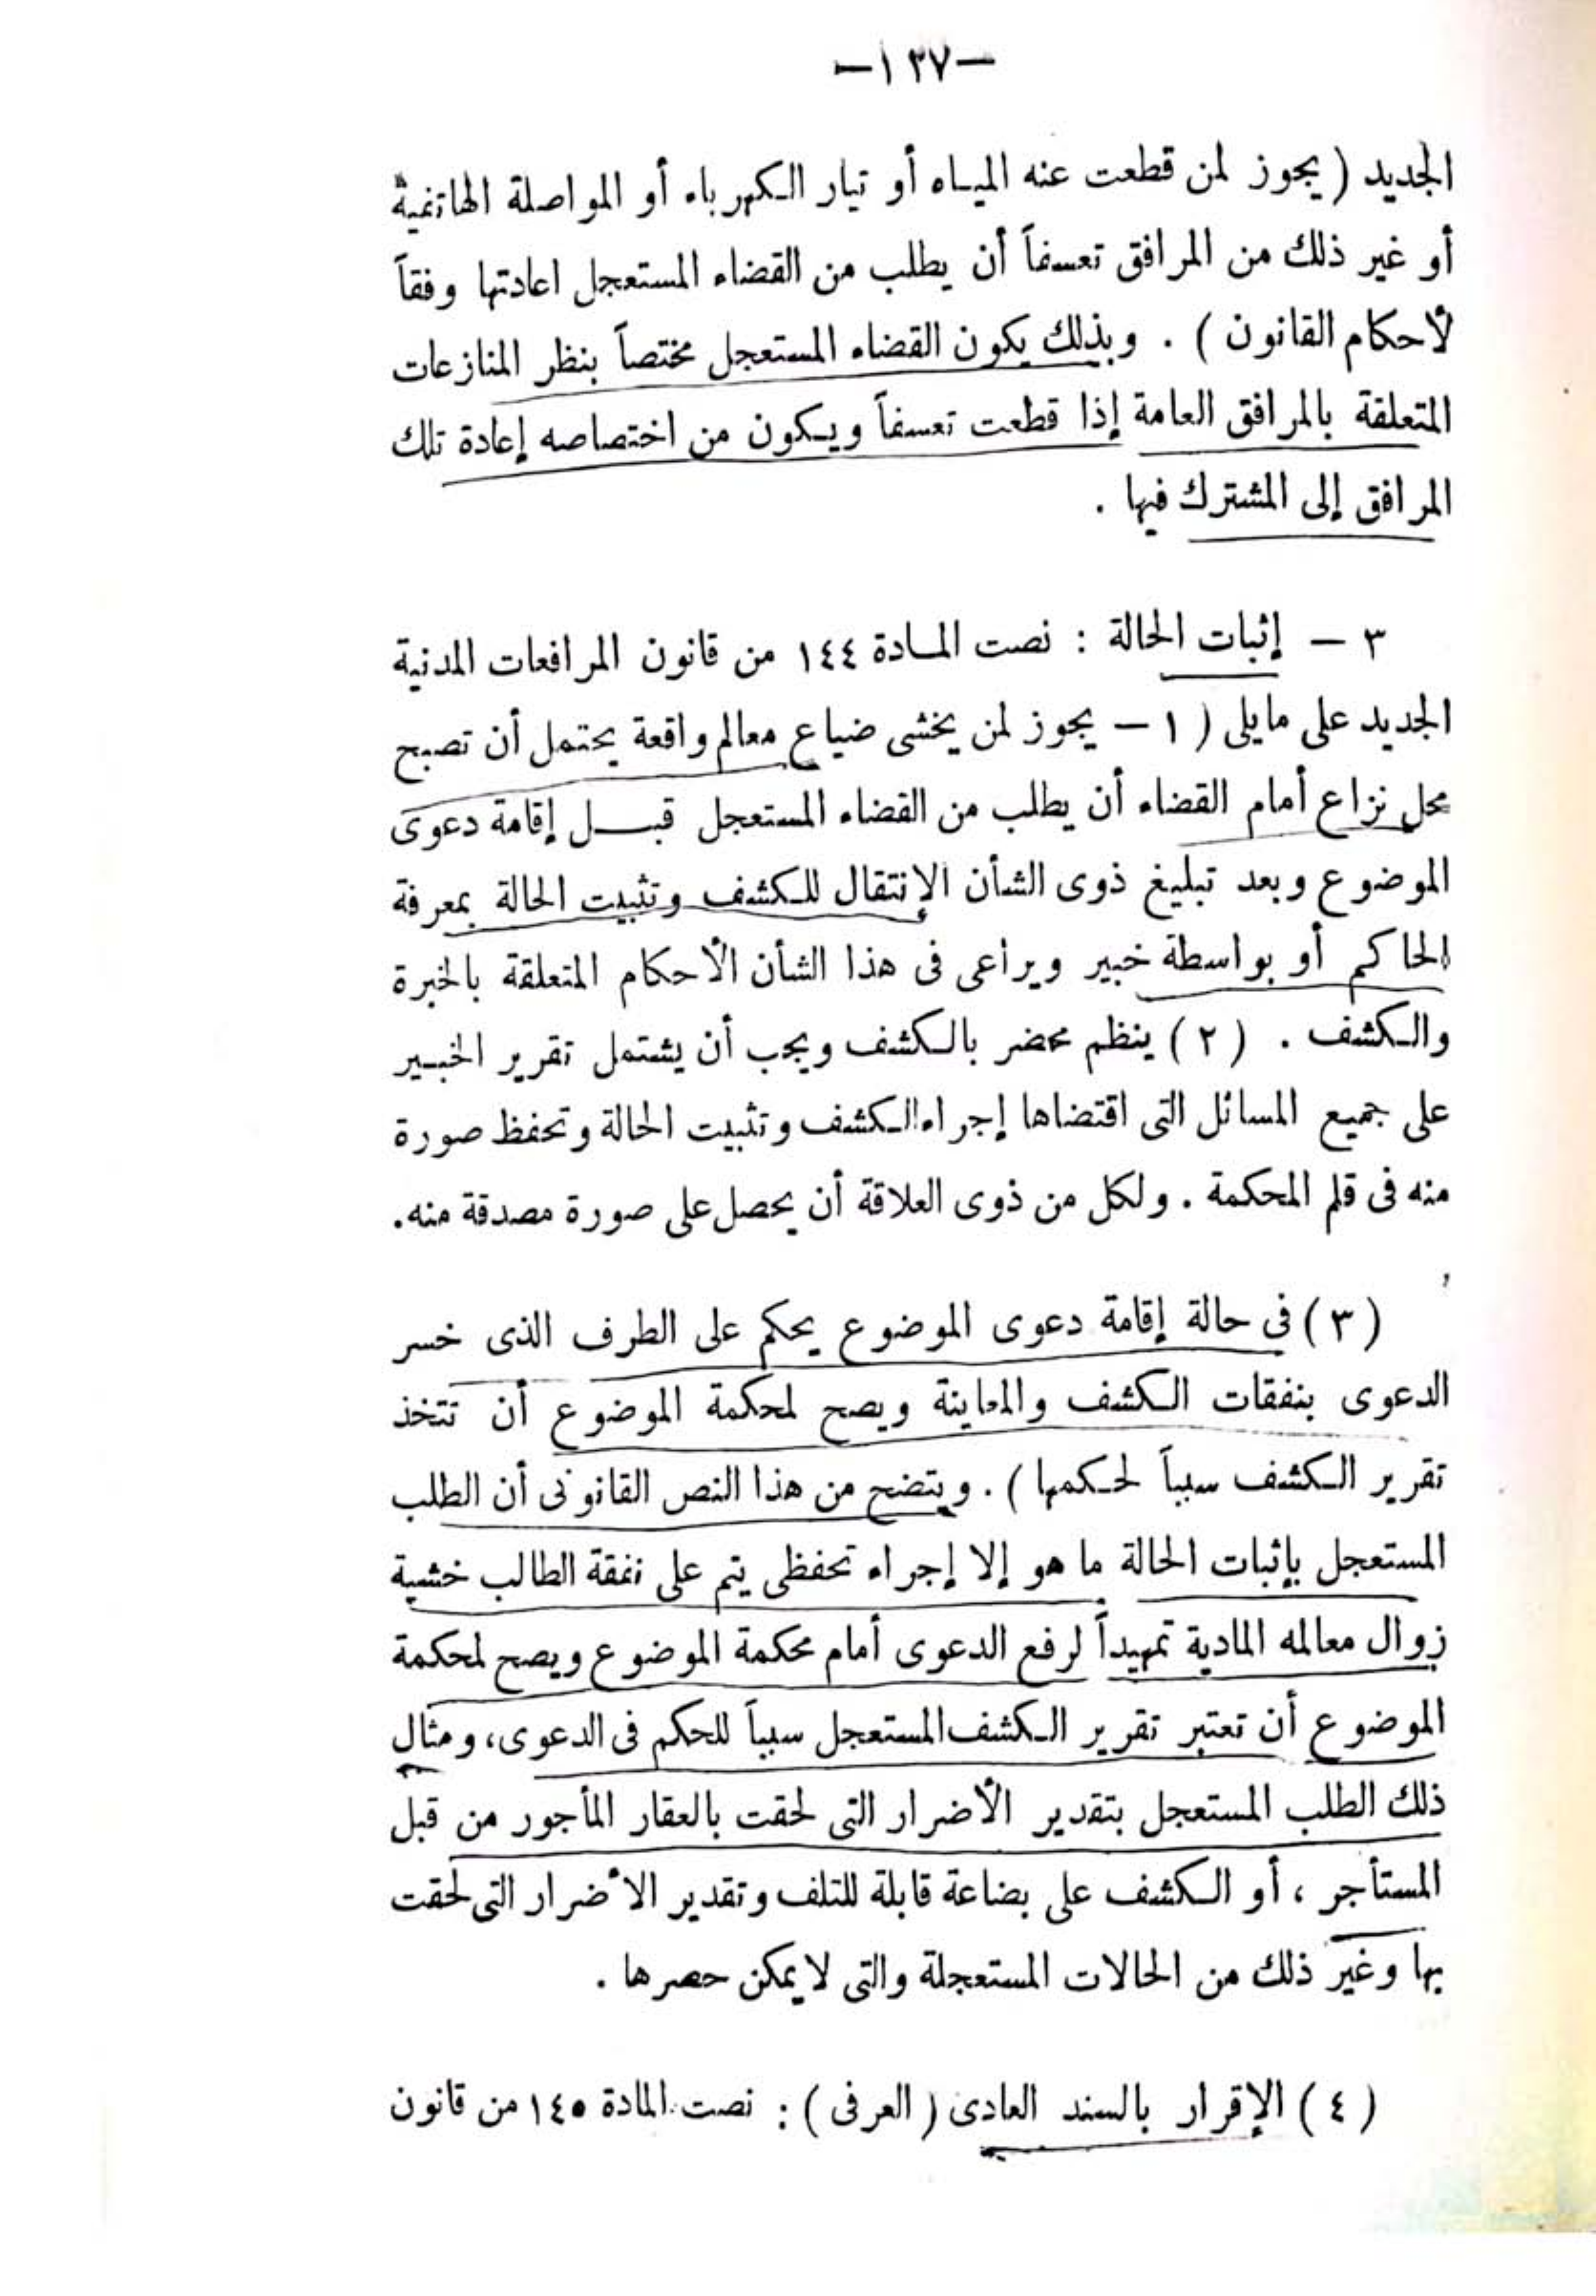 -١٣٧-
الجديد ( يجوز لمن قطعت عنه المياه أو تيار الكهرباء أو المواصلة الهاتفية
أو غير ذلك من المرافق تعسفاً أن يطلب من القضاء المستعجل اعادتها وفقاً
لأحكام القانون ) . وبذلك يكون القضاء المستعجل مختصاً بنظر المنازعات
المتعلقة بالمرافق العامة إذا قطعت تعسفاً ويكون من اختصاصه إعادة تلك
المرافق إلى المشترك فيها .
٣ - إثبات الحالة : نصت المادة ١٤٤ من قانون المرافعات المدنية
الجديد على مايلى ( ١ - يجوز لمن يخشى ضياع معالم واقعة يحتمل أن تصبح
محل نزاع أمام القضاء أن يطلب من القضاء المستعجل قبل إقامة دعوى
الموضوع وبعد تبليغ ذوى الشأن الإنتقال للكشف وتثبيت الحالة بمعرفة
الحاكم أو بواسطة خبير ويراعى فى هذا الشأن الأحكام المتعلقة بالخبرة
والكشف . ( ٢ ) ينظم محضر بالكشف ويجب أن يشتمل تقرير الخبير
على جميع المسائل التى اقتضاها إجراء الكشف وتثبيت الحالة وتحفظ صورة
منه فى قلم المحكمة . ولكل من ذوى العلاقة أن يحصل على صورة مصدقة منه.
( ٣ ) فى حالة إقامة دعوى الموضوع يحكم على الطرف الذى خسر
الدعوى بنفقات الكشف والمعاينة ويصح لمحكمة الموضوع أن تتخذ
تقرير الكشف سبباً لحكمها ) . ويتضح من هذا النص القانونى أن الطلب
المستعجل بإثبات الحالة ما هو إلا إجراء تحفظى يتم على نفقة الطالب خشية
زوال معالمه المادية تمهيداً لرفع الدعوى أمام محكمة الموضوع ويصح لمحكمة
الموضوع أن تعتبر تقرير الكشف المستعجل سبباً للحكم فى الدعوى، ومثال
ذلك الطلب المستعجل بتقدير الأضرار التى لحقت بالعقار المأجور من قبل
المستأجر ، أو الكشف على بضاعة قابلة للتلف وتقدير الأضرار التى لحقت
بها وغير ذلك من الحالات المستعجلة والتى لا يمكن حصرها .
( ٤ ) الإقرار بالسند العادى ( العرفى ) : نصت المادة ١٤٥ من قانون